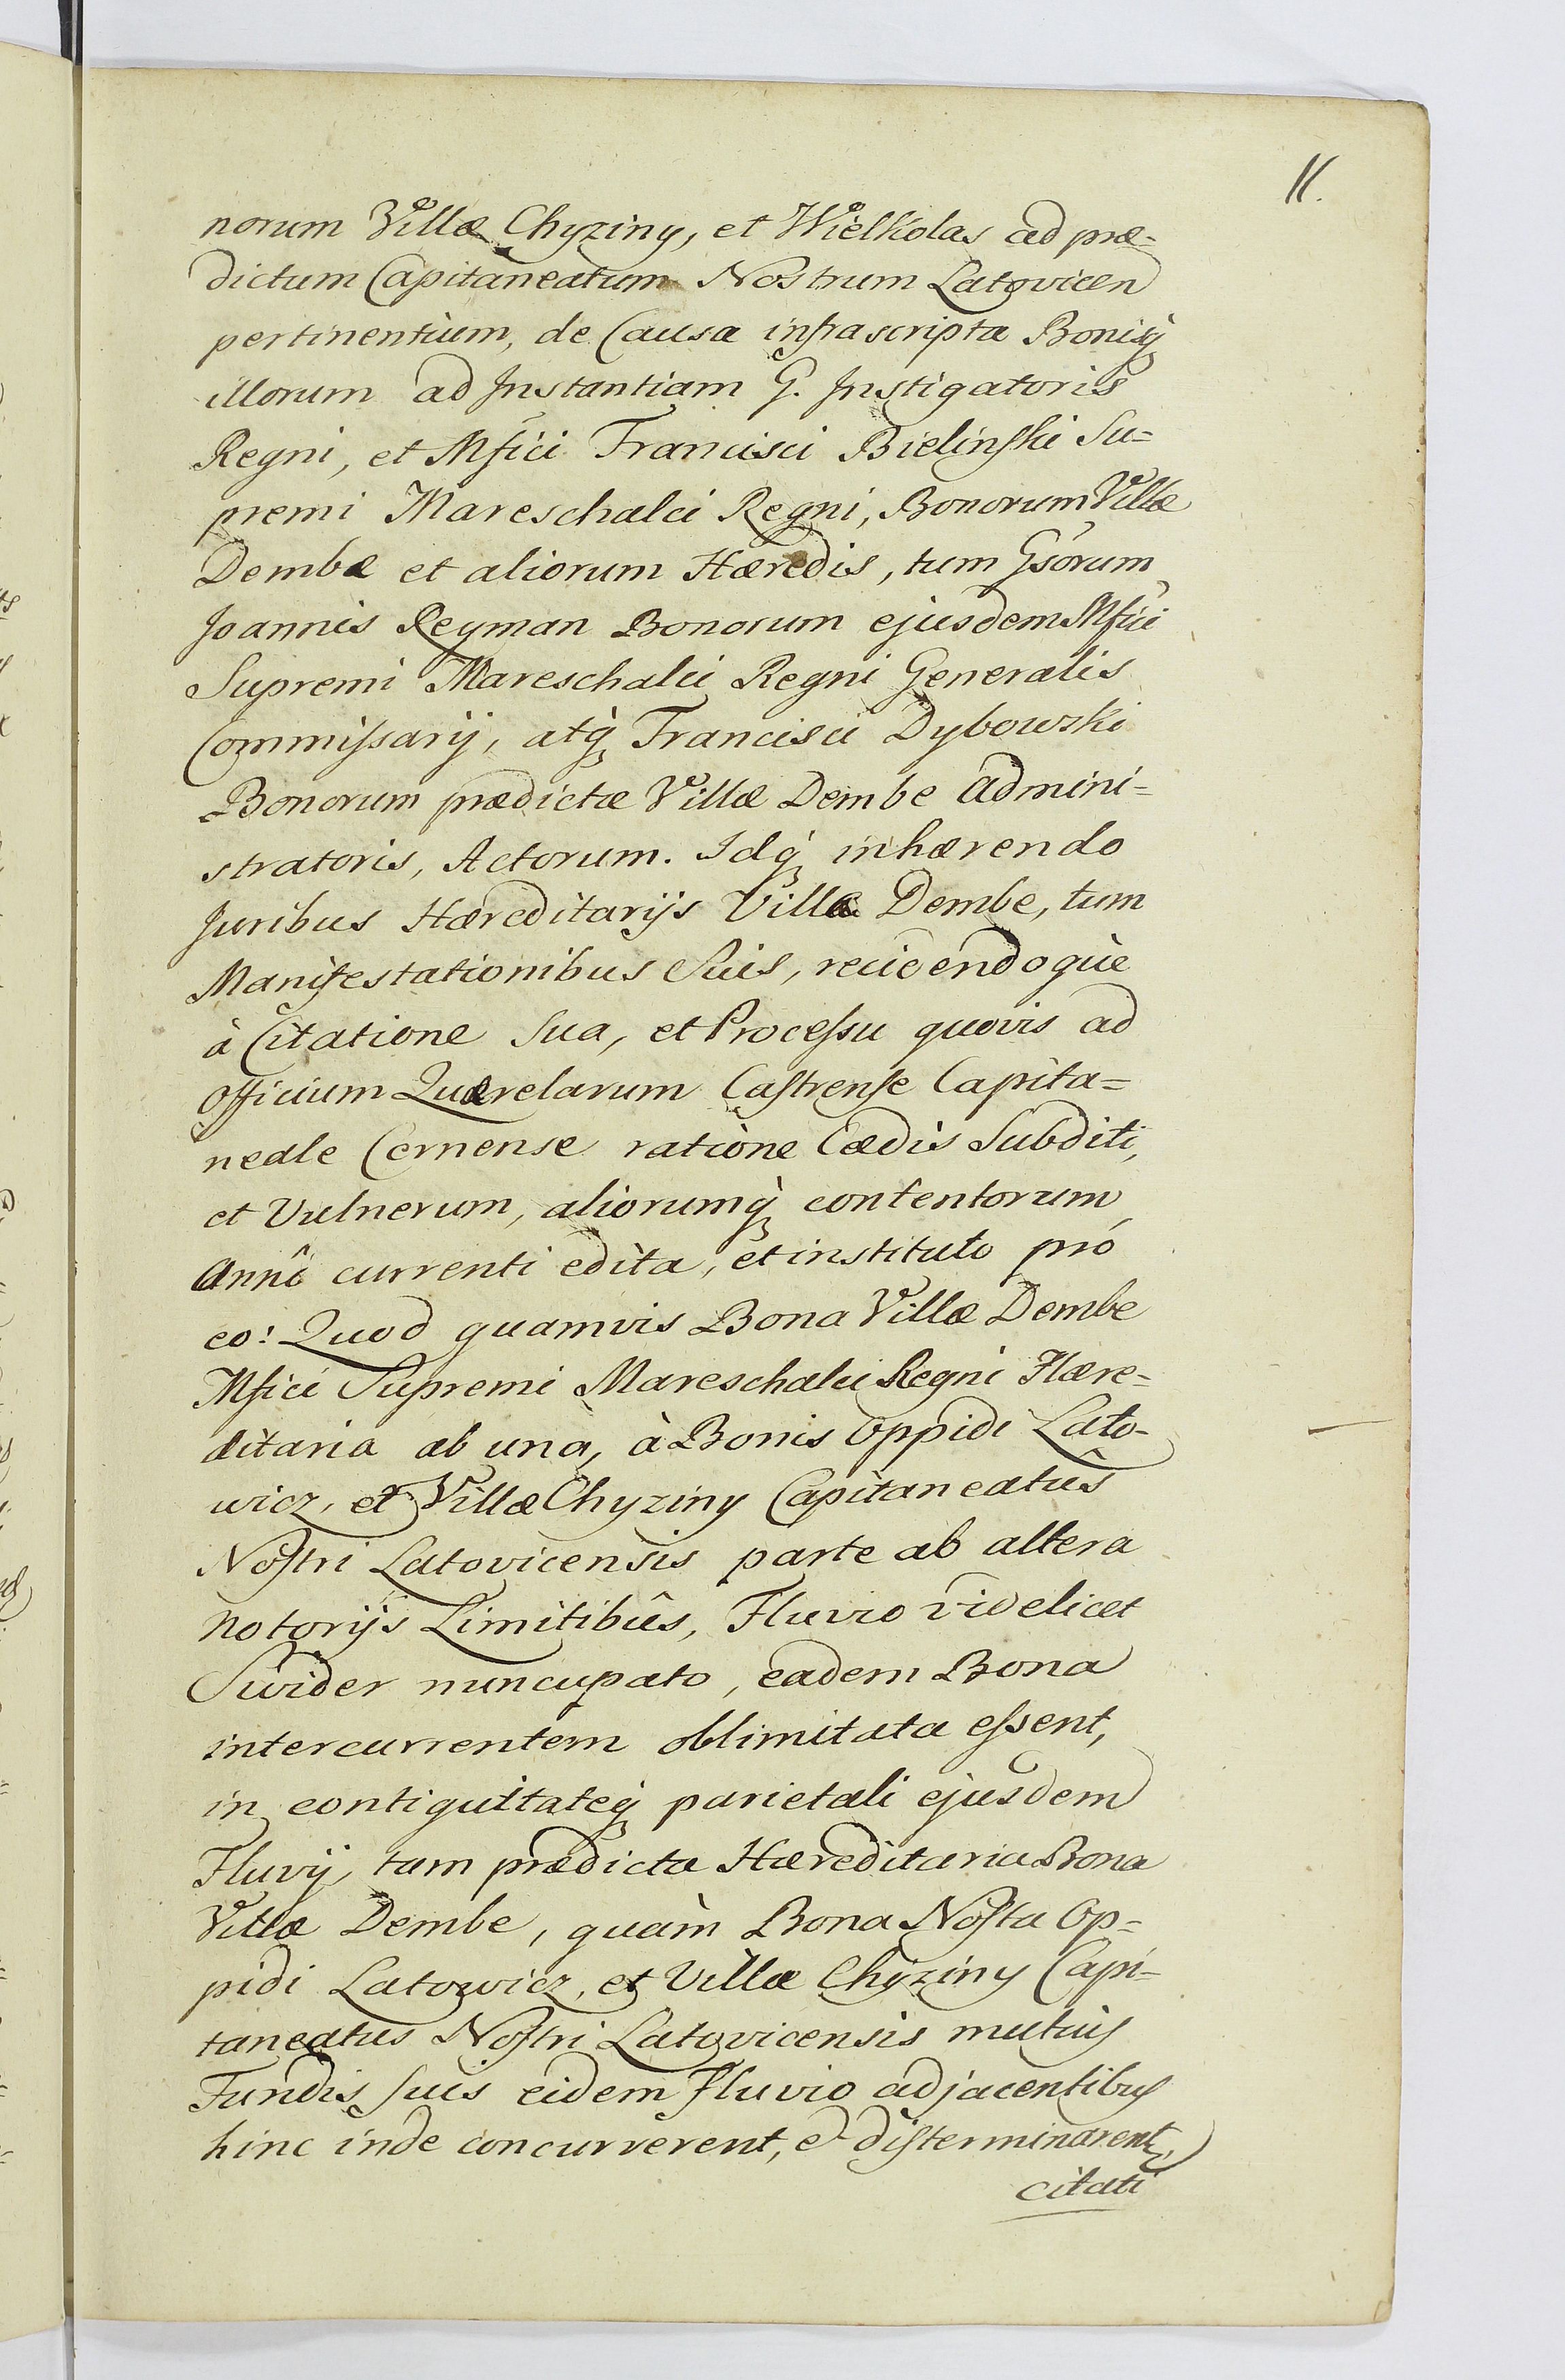 11.
norum Villæ Chyziny, et Wielkolas ad præ=
dictum Capitaneatum Nostrum Latovicen
pertinentium, de Causa infrascripta Bonisq̀
illorum ad Instantiam G. Instigatoris
Regni, et Mfici Francisci Bielinſki Su=
premi Mareschalci Regni, Bonorum Villæ
Dembe et aliorum Hæredis, tum Gsorum
Joannis Reyman Bonorum ejusdem Mfici
Supremi Mareschalci Regni Generalis
Commiſsarij, atq̀ Francisci Dybowski
Bonorum prædictæ Villæ Dembe admini=
stratoris, Actorum. Idq̀ inhærendo
Juribus Hæreditarijs Villæ Dembe, tum
Manifestationibus Suis, recidendoquè
à Citatione Sua, et Proceſsu quovis ad
Officium Querelarum Caſtrenſe Capita=
neale Cernense ratiòne Cædis Subditi,
et Vulnerum, aliorumq̀ contentorum
Annô currenti edita, et instituto prò
eo: Quod quamvis Bona Villæ Dembe
Mfici Supremi Mareschalci Regni Hære=
ditaria ab una, à Bonis Oppidi Lato-
wicz, et Villæ Chyziny Capitaneatûs
Noſtri Latovicensis parte ab altera
notorijs Limitibûs, Fluvio videlicet
Swider nuncupato, eadem Bona
intercurrentem oblimitata eſsent,
in contiguitateq̀ parietali ejusdem
Fluvij, tam prædicta Hæreditaria Bona
Villæ Dembe, quàm Bona Noſtra Op=
pidi Latowicz, et Villæ Chyziny Capi=
taneatus Noſtri Latovicensis mutuis
Fundis ſuis eidem Fluvio adjacentibus
hinc inde concurrerent, et diſterminarent,
citati